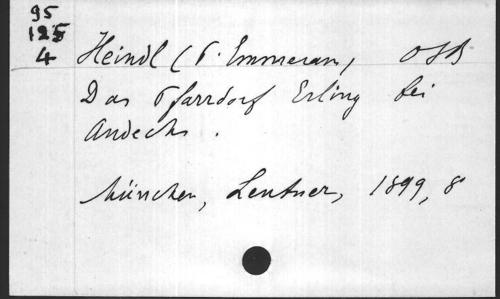 95
125
4
Heindl (P. Emmeram) OSB
Das Pfarrdorf Erling bei
Andechs.
München, Lentner, 1899, 8